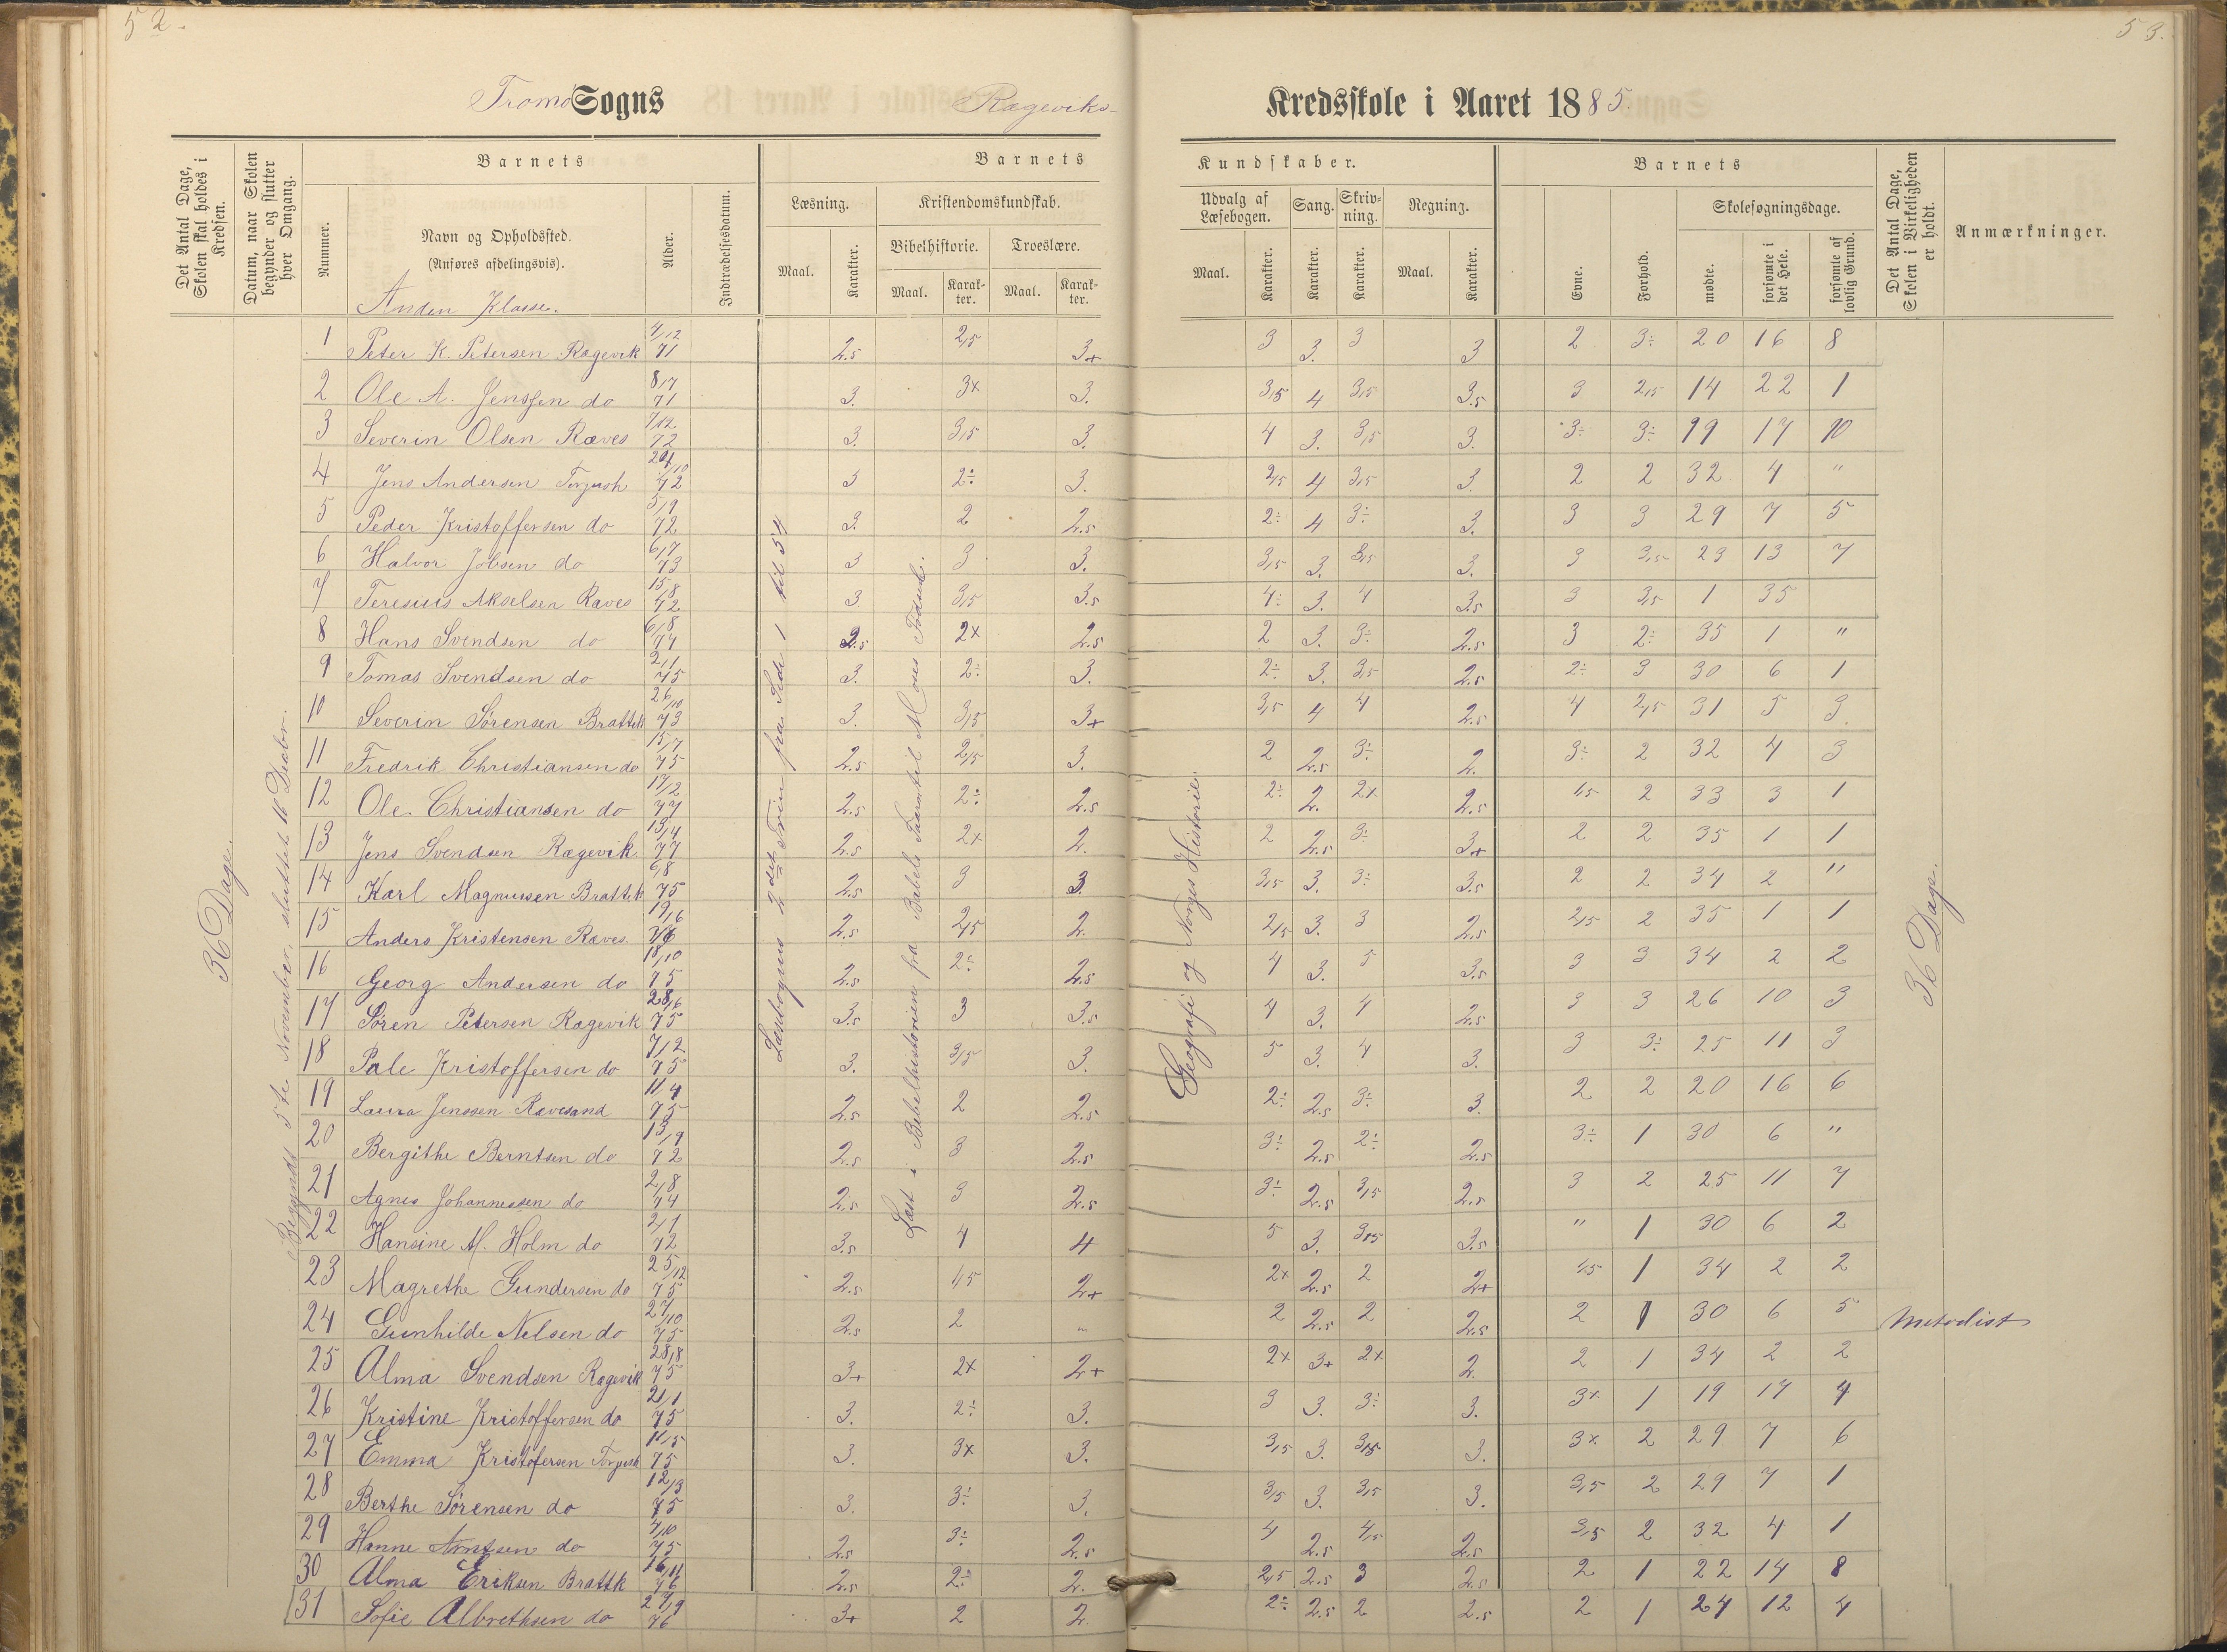 52.
53.
Tromø Sogns Rægeviks- Kredsskole i Aaret 1885.
Det Antal Dage, Skolen skal holdes i Kredsen.
Datum, naar Skolen begynder og slutter hver Omgang.
Barnets
Nummer.
Navn og Opholdssted.
(Anføres afdelingsvis).
Alder.
Indtrædelsesdatum.
Anden Klasse.
Barnets Kundskaber.
Læsning.
Maal.
Karakter.
Kristendomskundskab.
Bibelhistorie.
Maal.
Karakter.
Troeslære.
Maal.
Karakter.
Udvalg af Læsebogen.
Maal.
Karakter.
Sang.
Karakter.
Skrivning.
Karakter.
Regning.
Maal.
Karakter.
Barnets
Evne.
Forhold.
Skolesøgningsdage.
mødte.
forsømte i det Hele.
forsømte af lovlig Grund.
Det Antal Dage, Skolen i Virkeligheden er holdt.
Anmærkninger.
36 Dage.
Begyndt 5te November, sluttet 16 Decbr.
Læsebogens 2det Trin fra Side 1 til 54
Læst i Bibelhistorien fra Babels Taarn til Moses
Geografi og Norges Historie.
36 Dage.
1 Peter K. Petersen Rægevik 4/12 71 2.5 2,5 3+ 3 3. 3 3 2 3÷ 20 16 8
2 Ole A. Jenssen do 8/7 71 3. 3x 3. 3,5 4 3,5 3.5 3 2,5 14 22 1
3 Severin Olsen Ræves 7/12 72 3. 3,5 3. 4 3. 3,5 3. 3÷ 3÷ 19 17 10
4 Jens Andersen Torjush 72 3 2÷ 3. 2,5 4 3,5 3. 2 2 32 4 "
5 Peder Kristoffersen do 5/9 72 3. 2 2.5 2÷ 4 3÷ 3. 3 3 29 7 5
6 Halvor Jobsen do 6/7 73 3 3 3. 3,5 3. 3,5 3. 3 3,5 23 13 7
7 Teresius Akselsen Ræves 15/8 72 3 3,5 3.5 4÷ 3. 4 3.5 3 3,5 1 35
8 Hans Svendsen do 6/8 74 2.5 2x 2.5 2 3. 3÷ 2.5 3 2÷ 35 1 "
9 Tomas Svendsen do 2/1 75 3. 2÷ 3. 2÷ 3. 3,5 2.5 2÷ 3 30 6 1
10 Severin Sørensen Brattek 26/10 73 3. 3,5 3+ 3,5 4 4 2.5 4 2,5 31 5 3.
11 Fredrik Christiansen do 15/7 75 2.5 2,5 3. 2 2.5 3÷ 2. 3÷ 2 32 4 3
12 Ole Christiansen do 17/2 77 2.5 2÷ 2.5 2÷ 2. 2x 2.5 1,5 2 33 3 1
13 Jens Svendsen Rægevik. 13/4 77 2.5 2x 2. 2 2.5 3÷ 3+ 2 2 35 1 1
14 Karl Magnussen Brattek 6/8 75 2.5 3 3. 3,5 3. 3÷ 3.5 2 2 34 2 "
15 Anders Kristensen Ræves. 19/6 76 2.5 2,5 2. 2,5 3. 3 2.5 2,5 2 35 1 1
16 Georg Andersen do 18/10 75 2.5 2÷ 2.5 4 3. 5 3.5 3 3 34 2 2
17 Søren Petersen Rægevik 28/6 75 3.5 3 3.5 4 3. 4 2.5 3 3 26 10 3
18 Pale Kristoffersen do 7/12 75 3. 3,5 3. 5 3. 4 3. 3 3÷ 25 11 3
19 Laura Jenssen Rævesand 11/4 75 2.5 2 2.5 2÷ 2.5 3÷ 3. 2 2 20 16 6
20 Bergithe Berntsen do 13/9 72 2.5 3 2.5 3÷ 2.5 2÷ 2.5 3÷ 1 30 6 "
21 Agnes Johannessen do 2/8 74 2.5 3 2.5 3÷ 2.5 3,5 2.5 3 2 25 11 7
22 Hansine M. Holm do 2/1 72 3.5 4 4 5 3. 3,5 3.5 " 1 30 6 2
23 Magrethe Gundersen do 25/12 75 2.5 1,5 2+ 2x 2.5 2 2+ 1,5 1 34 2 2
24 Gunhilde Nelsen do 27/10 75 2.5 2 " 2 2.5 2 2.5 2 1 30 6 5 Metodist
25 Alma Svendsen Rægevik 28/8 75 3+ 2x 2+ 2x 3+ 2x 2. 2 1 34 2 2
26 Kristine Kristoffersen do 21/1 75 3. 2÷ 3. 3 3. 3÷ 3. 3x 1 19 17 4
27 Emma Kristofersen Torjush 11/5 75 3. 3x 3. 3,5 3. 3,5 3. 3x 2 29 7 6
28 Berthe Sørensen do 12/3 75 3. 3÷ 3. 3,5 3. 3,5 3. 3,5 2 29 7 1
29 Hanne Arntsen do 4/10 75 2.5 3÷ 2.5 4 2.5 4,5 2.5 3,5 2 32 4 1
30 Alma Eriksen Brattk 16/11 76 2.5 2÷ 2. 2,5 2.5 3 2.5 2 1 22 14 8
31 Sofie Albrethsen do 27/9 76 3+ 2 2. 2÷ 2.5 2 2.5 2 1 24 12 4